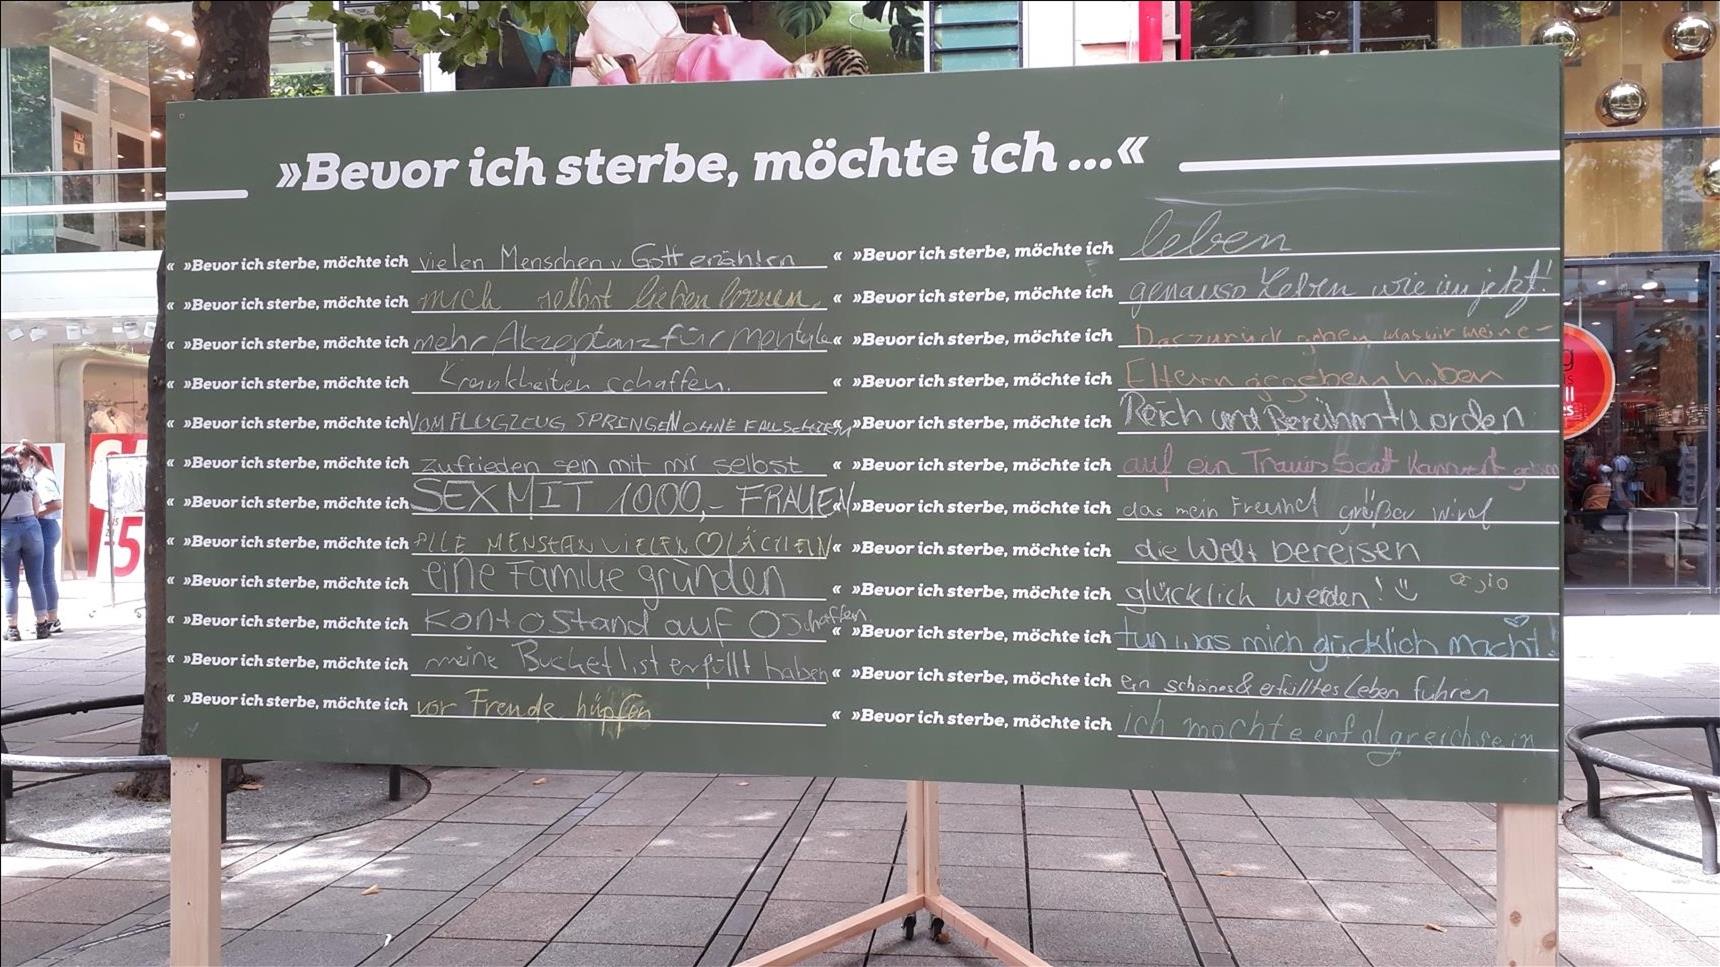 »Bevor ich sterbe, möchte ich ...«
« »Bevor ich sterbe, möchte ich vielen Menschen v Gott erzählen
« »Bevor ich sterbe, möchte ich mich selbst lieben lernen.
« »Bevor ich sterbe, möchte ich mehr Akzeptanz für mentale
« »Bevor ich sterbe, möchte ich Krankheiten schaffen.
« »Bevor ich sterbe, möchte ich VOM FLUGZEUG SPRINGEN OHNE
« »Bevor ich sterbe, möchte ich zufrieden sein mit mir selbst
« »Bevor ich sterbe, möchte ich SEX MIT 1000,- FRAUEN
« »Bevor ich sterbe, möchte ich ALLE
« »Bevor ich sterbe, möchte ich eine Familie gründen
« »Bevor ich sterbe, möchte ich Kontostand auf 0 schaffen
« »Bevor ich sterbe, möchte ich meine Bucketlist erfüllt haben
« »Bevor ich sterbe, möchte ich vor Freude hüpfen
« »Bevor ich sterbe, möchte ich leben
« »Bevor ich sterbe, möchte ich genauso Leben wie im jetzt!
« »Bevor ich sterbe, möchte ich Das zurück geben was wir meine-
« »Bevor ich sterbe, möchte ich Eltern gegeben haben
« »Bevor ich sterbe, möchte ich Reich und Berühmt worden
« »Bevor ich sterbe, möchte ich auf ein Travis Scott
« »Bevor ich sterbe, möchte ich das mein Freund größer wird
« »Bevor ich sterbe, möchte ich die Welt bereisen
« »Bevor ich sterbe, möchte ich glücklich werden!
« »Bevor ich sterbe, möchte ich tun was mich gücklich macht!
« »Bevor ich sterbe, möchte ich ein schönes & erfülltes Leben führen
« »Bevor ich sterbe, möchte ich ich möchte erfolgreich sein